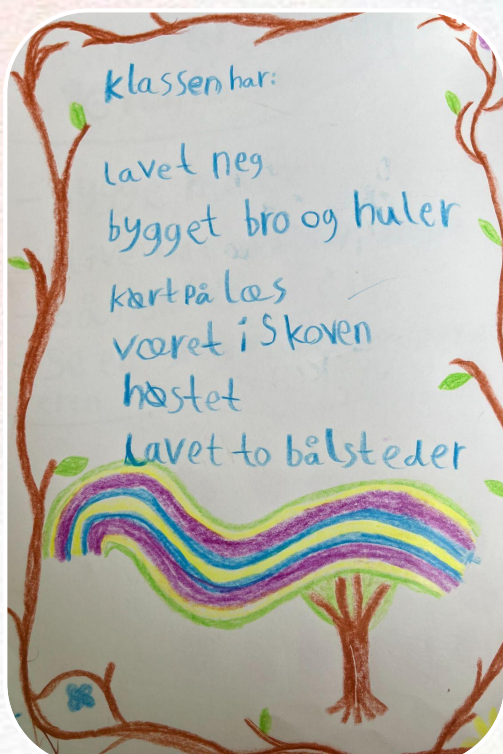 klassen har:
lavet neg
bygget bro og huler
kørt på læs
været i Skoven
høstet
Lavet to bålsteder